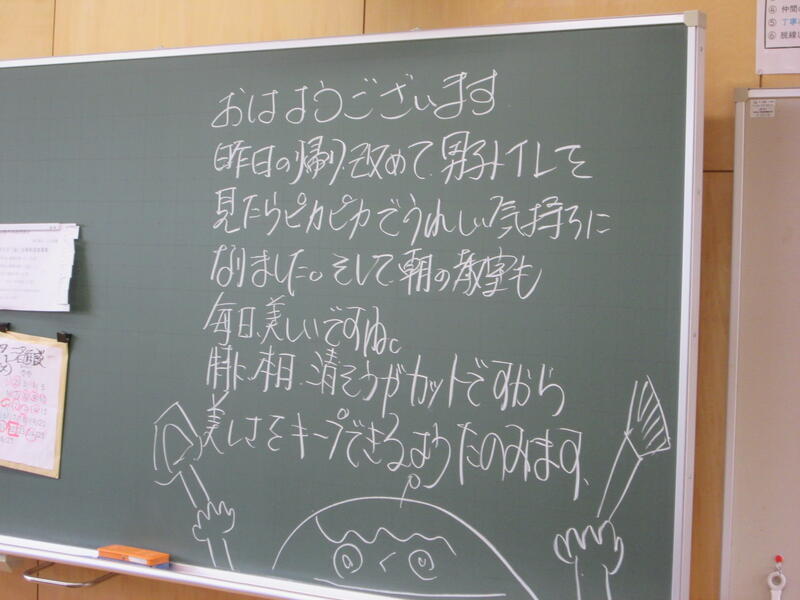 おはようございます
昨日の帰り、改めて、男子トイレを
見たらピカピカでうれしい気持ちに
なりました。そして、朝の教室も
毎日、美しいですね。
清そうがカットですから
美しさをキープできるようたのみます。
④ 仲間
⑤ 丁寧
⑥ 脱線し